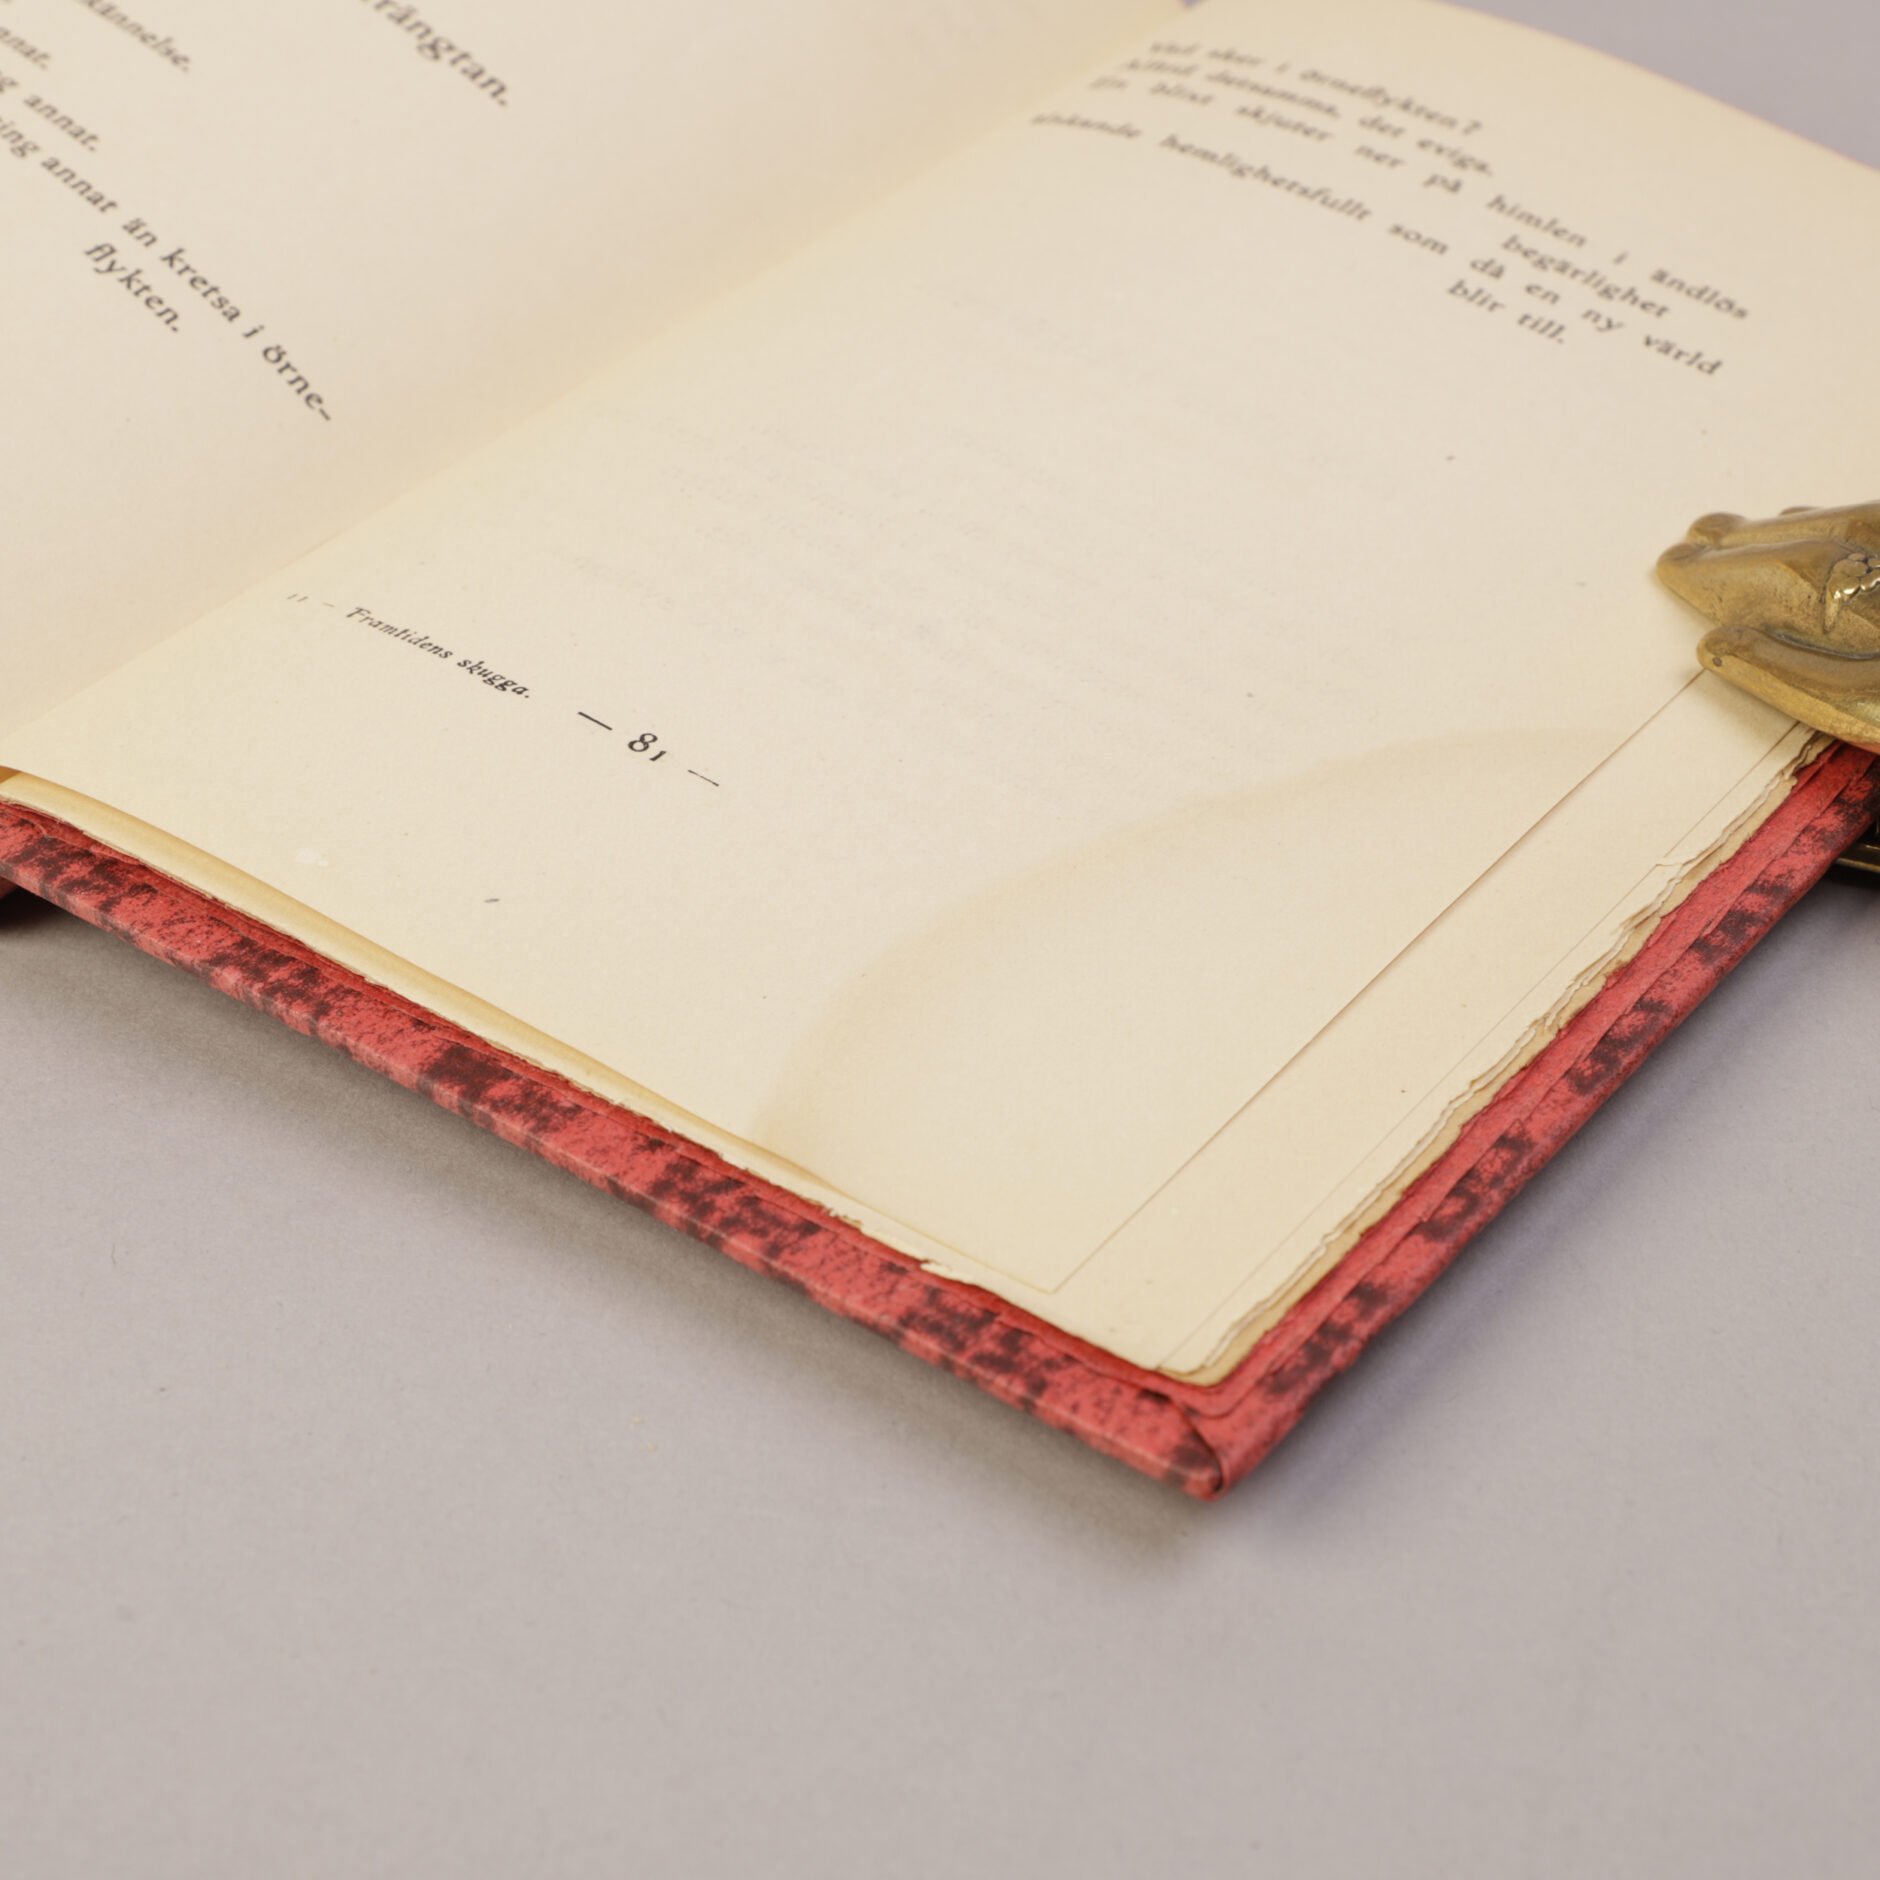 rängtan.
kännelse.
nnat.
g annat.
ing annat än kretsa i örne-
flykten.
sker i örneflykten?
Alltid detsamma, det eviga.
En blixt skjuter ner på himlen i ändlös
begärlighet
hemlighetsfullt som då en ny värld
blir till.
11 — Framtidens skugga.
— 81 —